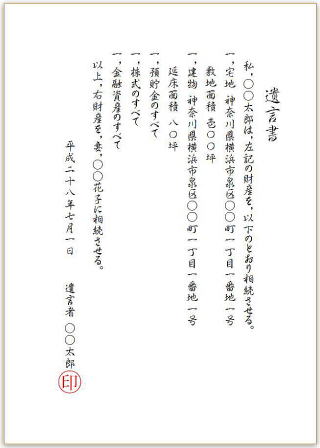 遺言書
私、〇〇太郎は、左記の財産を、以下のとおり相続させる。
一、宅地 神奈川県横浜市泉区〇〇町一丁目一番地一号
敷地面積 壱〇〇坪
一、建物 神奈川県横浜市泉区〇〇町一丁目一番地一号
延床面積 八〇坪
一、預貯金のすべて
一、株式のすべて
一、金融資産のすべて
以上、右財産を、妻、〇〇花子に相続させる。
平成二十八年七月一日 遺言者 〇〇太郎 印